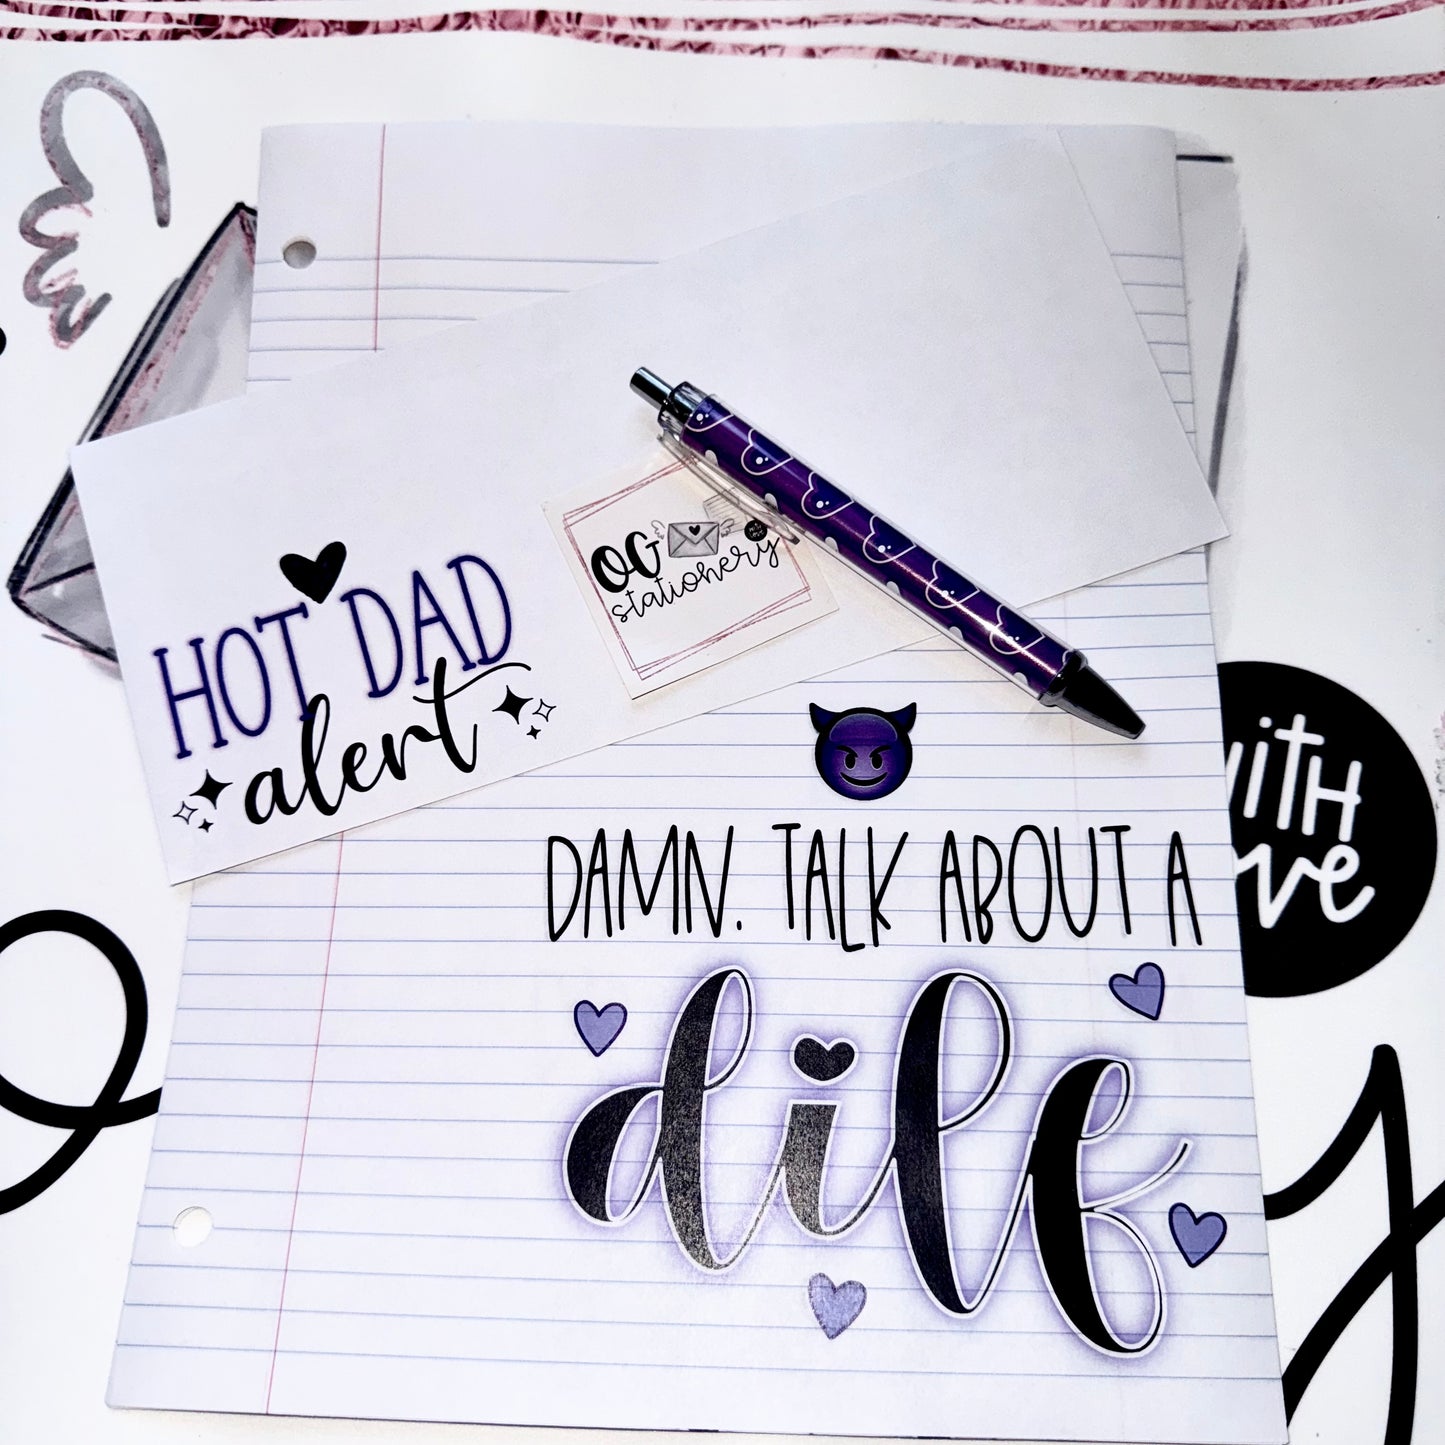 HOT DAD
alert
OG
stationery
DAMN. TALK ABOUT A
dilf
WITH
love